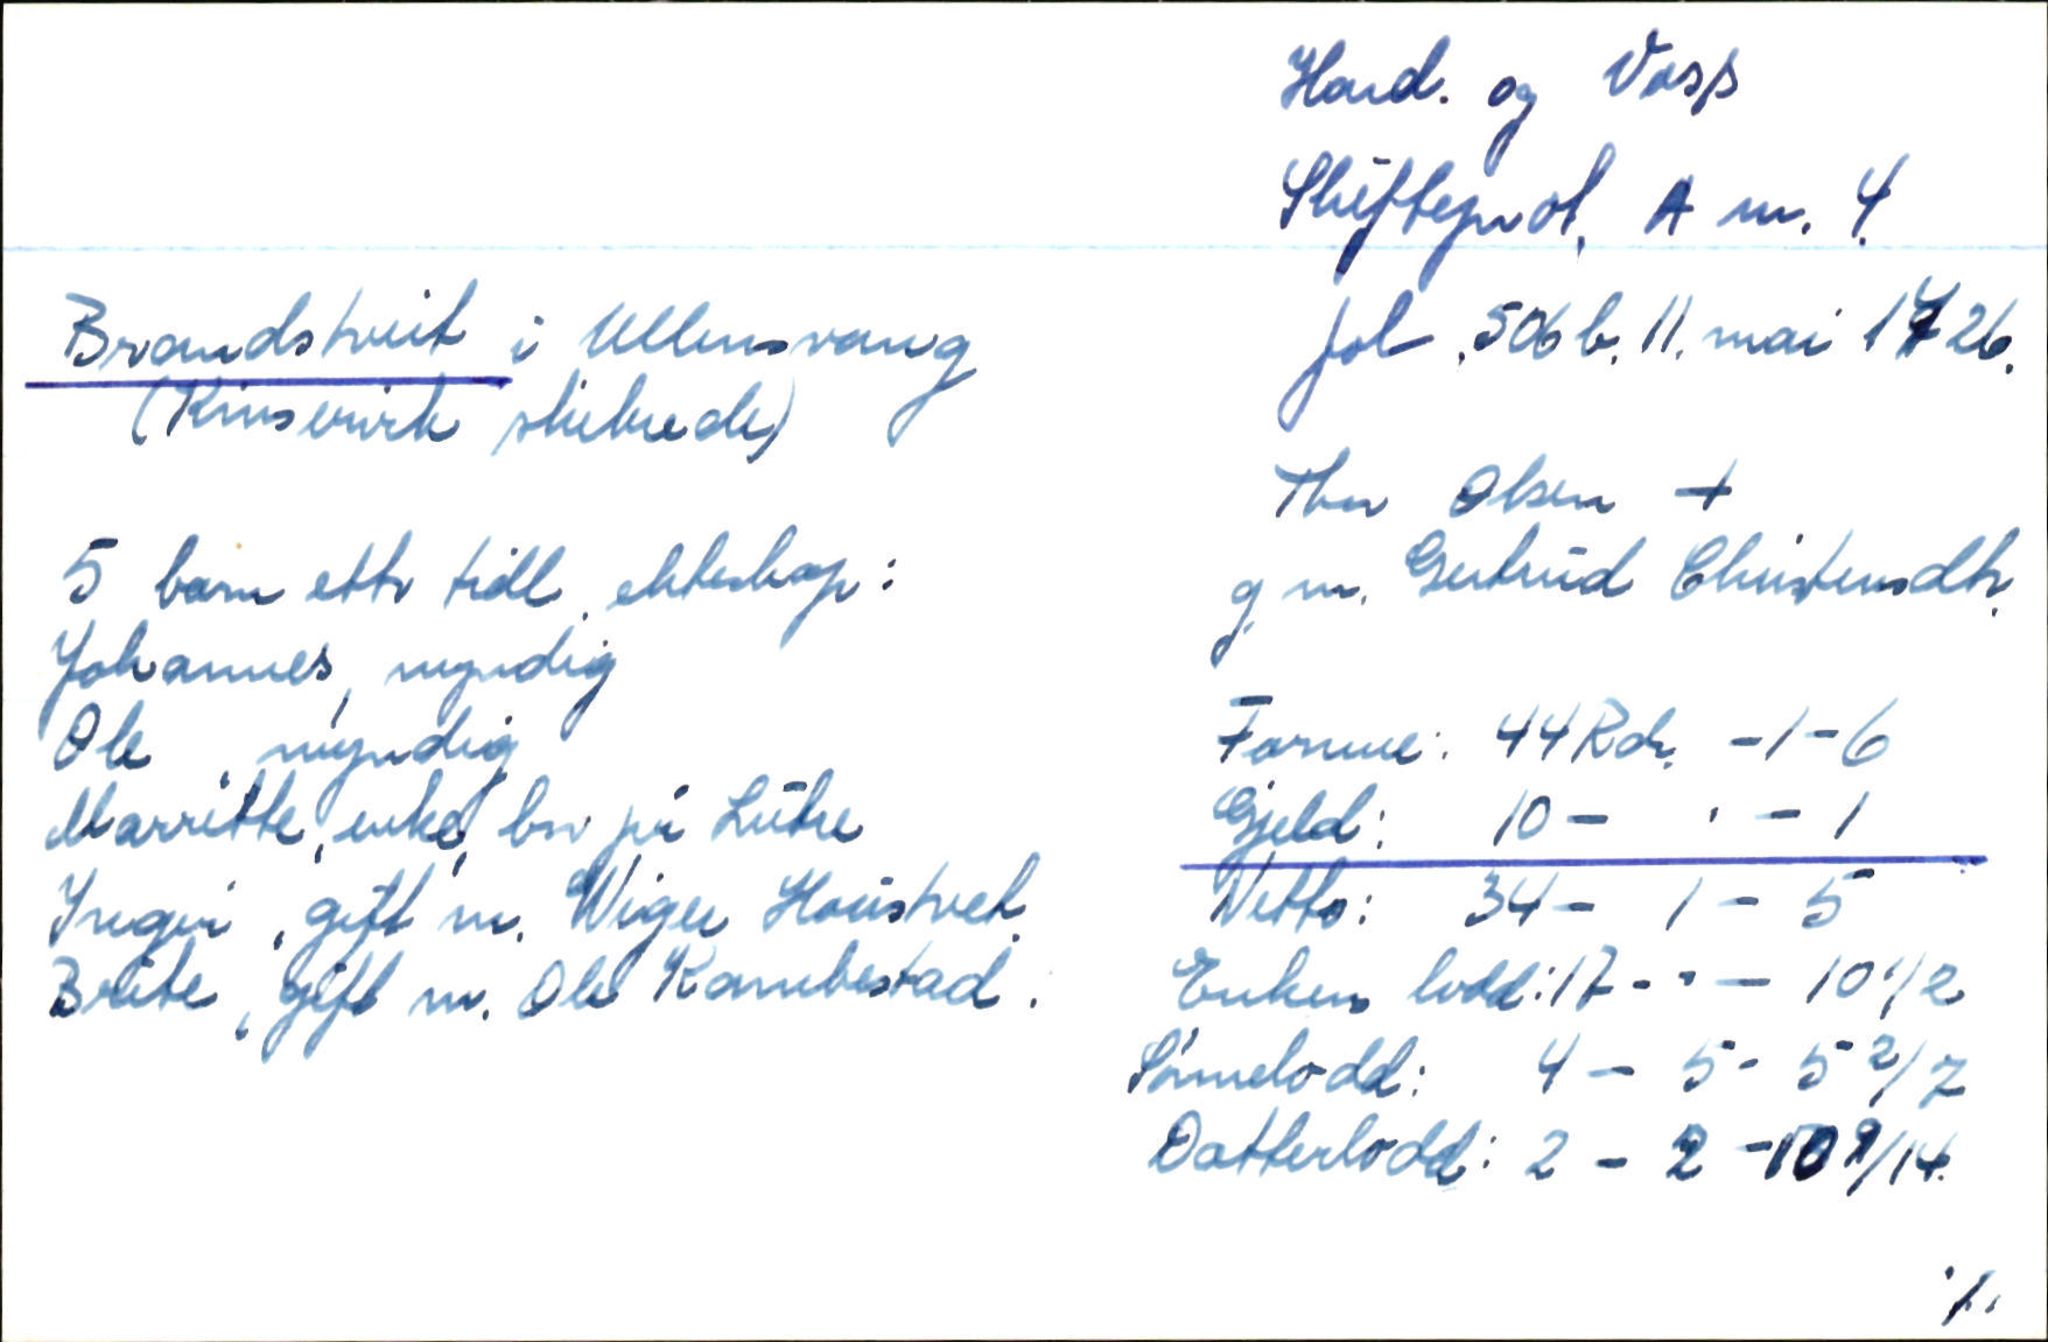 Hard. og Voss
Skifteprot. A nr. 4.
fol. 506 b. 11. mai 1726.
Brandstveit i Ullensvang
(Kinservik skibrede)
Thor Olsen +
g. m. Gertrud Christensdtr.
5 barn ettr tidl. ekteskap:
Johannes, myndig
Ole, myndig
Marritte, enke, bor på Lutre
Ingeri, gift m. Wiger Houstvet.
Brite, gift m. Ole Rambestad.
Formue: 44 Rdr. - 1 - 6
Gjeld: 10 - . - 1
Netto: 34 - 1 - 5
Enkens lodd: 17 - . - 10 1/2
Sønnelodd: 4 - 5 - 5 2/7
Datterlodd: 2 - 2 - 10 9/14.
./.